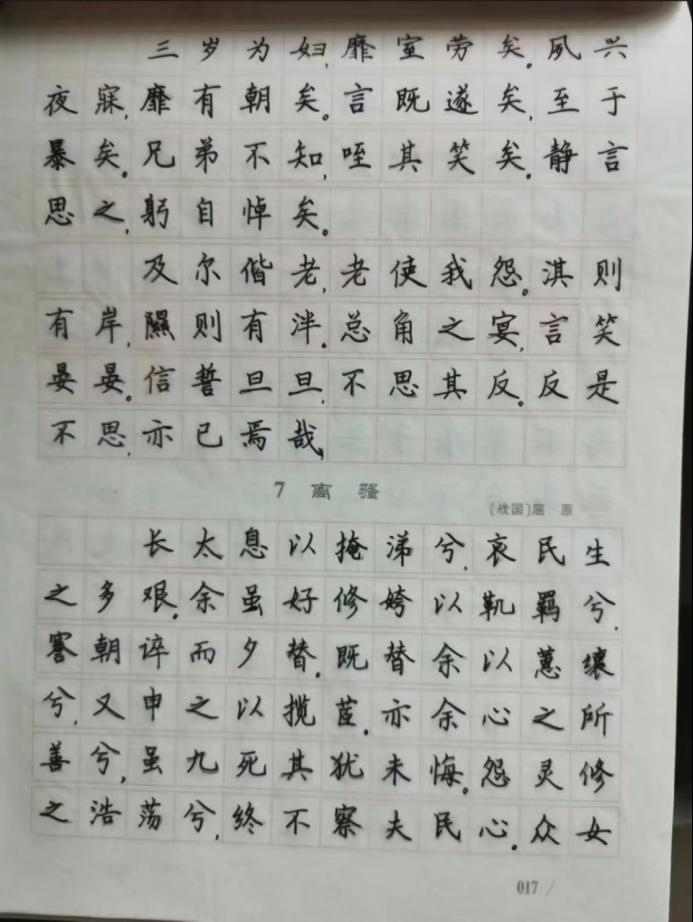 三岁为妇,靡室劳矣。夙兴
夜寐,靡有朝矣。言既遂矣,至于
暴矣。兄弟不知,咥其笑矣。静言
思之,躬自悼矣。
及尔偕老,老使我怨。淇则
有岸,隰则有泮。总角之宴,言笑
晏晏。信誓旦旦,不思其反。反是
不思,亦已焉哉。
7 离骚
〔战国〕屈 原
长太息以掩涕兮,哀民生
之多艰。余虽好修姱以鞿羁兮,
謇朝谇而夕替。既替余以蕙纕
兮,又申之以揽茝。亦余心之所
善兮,虽九死其犹未悔。怨灵修
之浩荡兮,终不察夫民心。众女
017 /